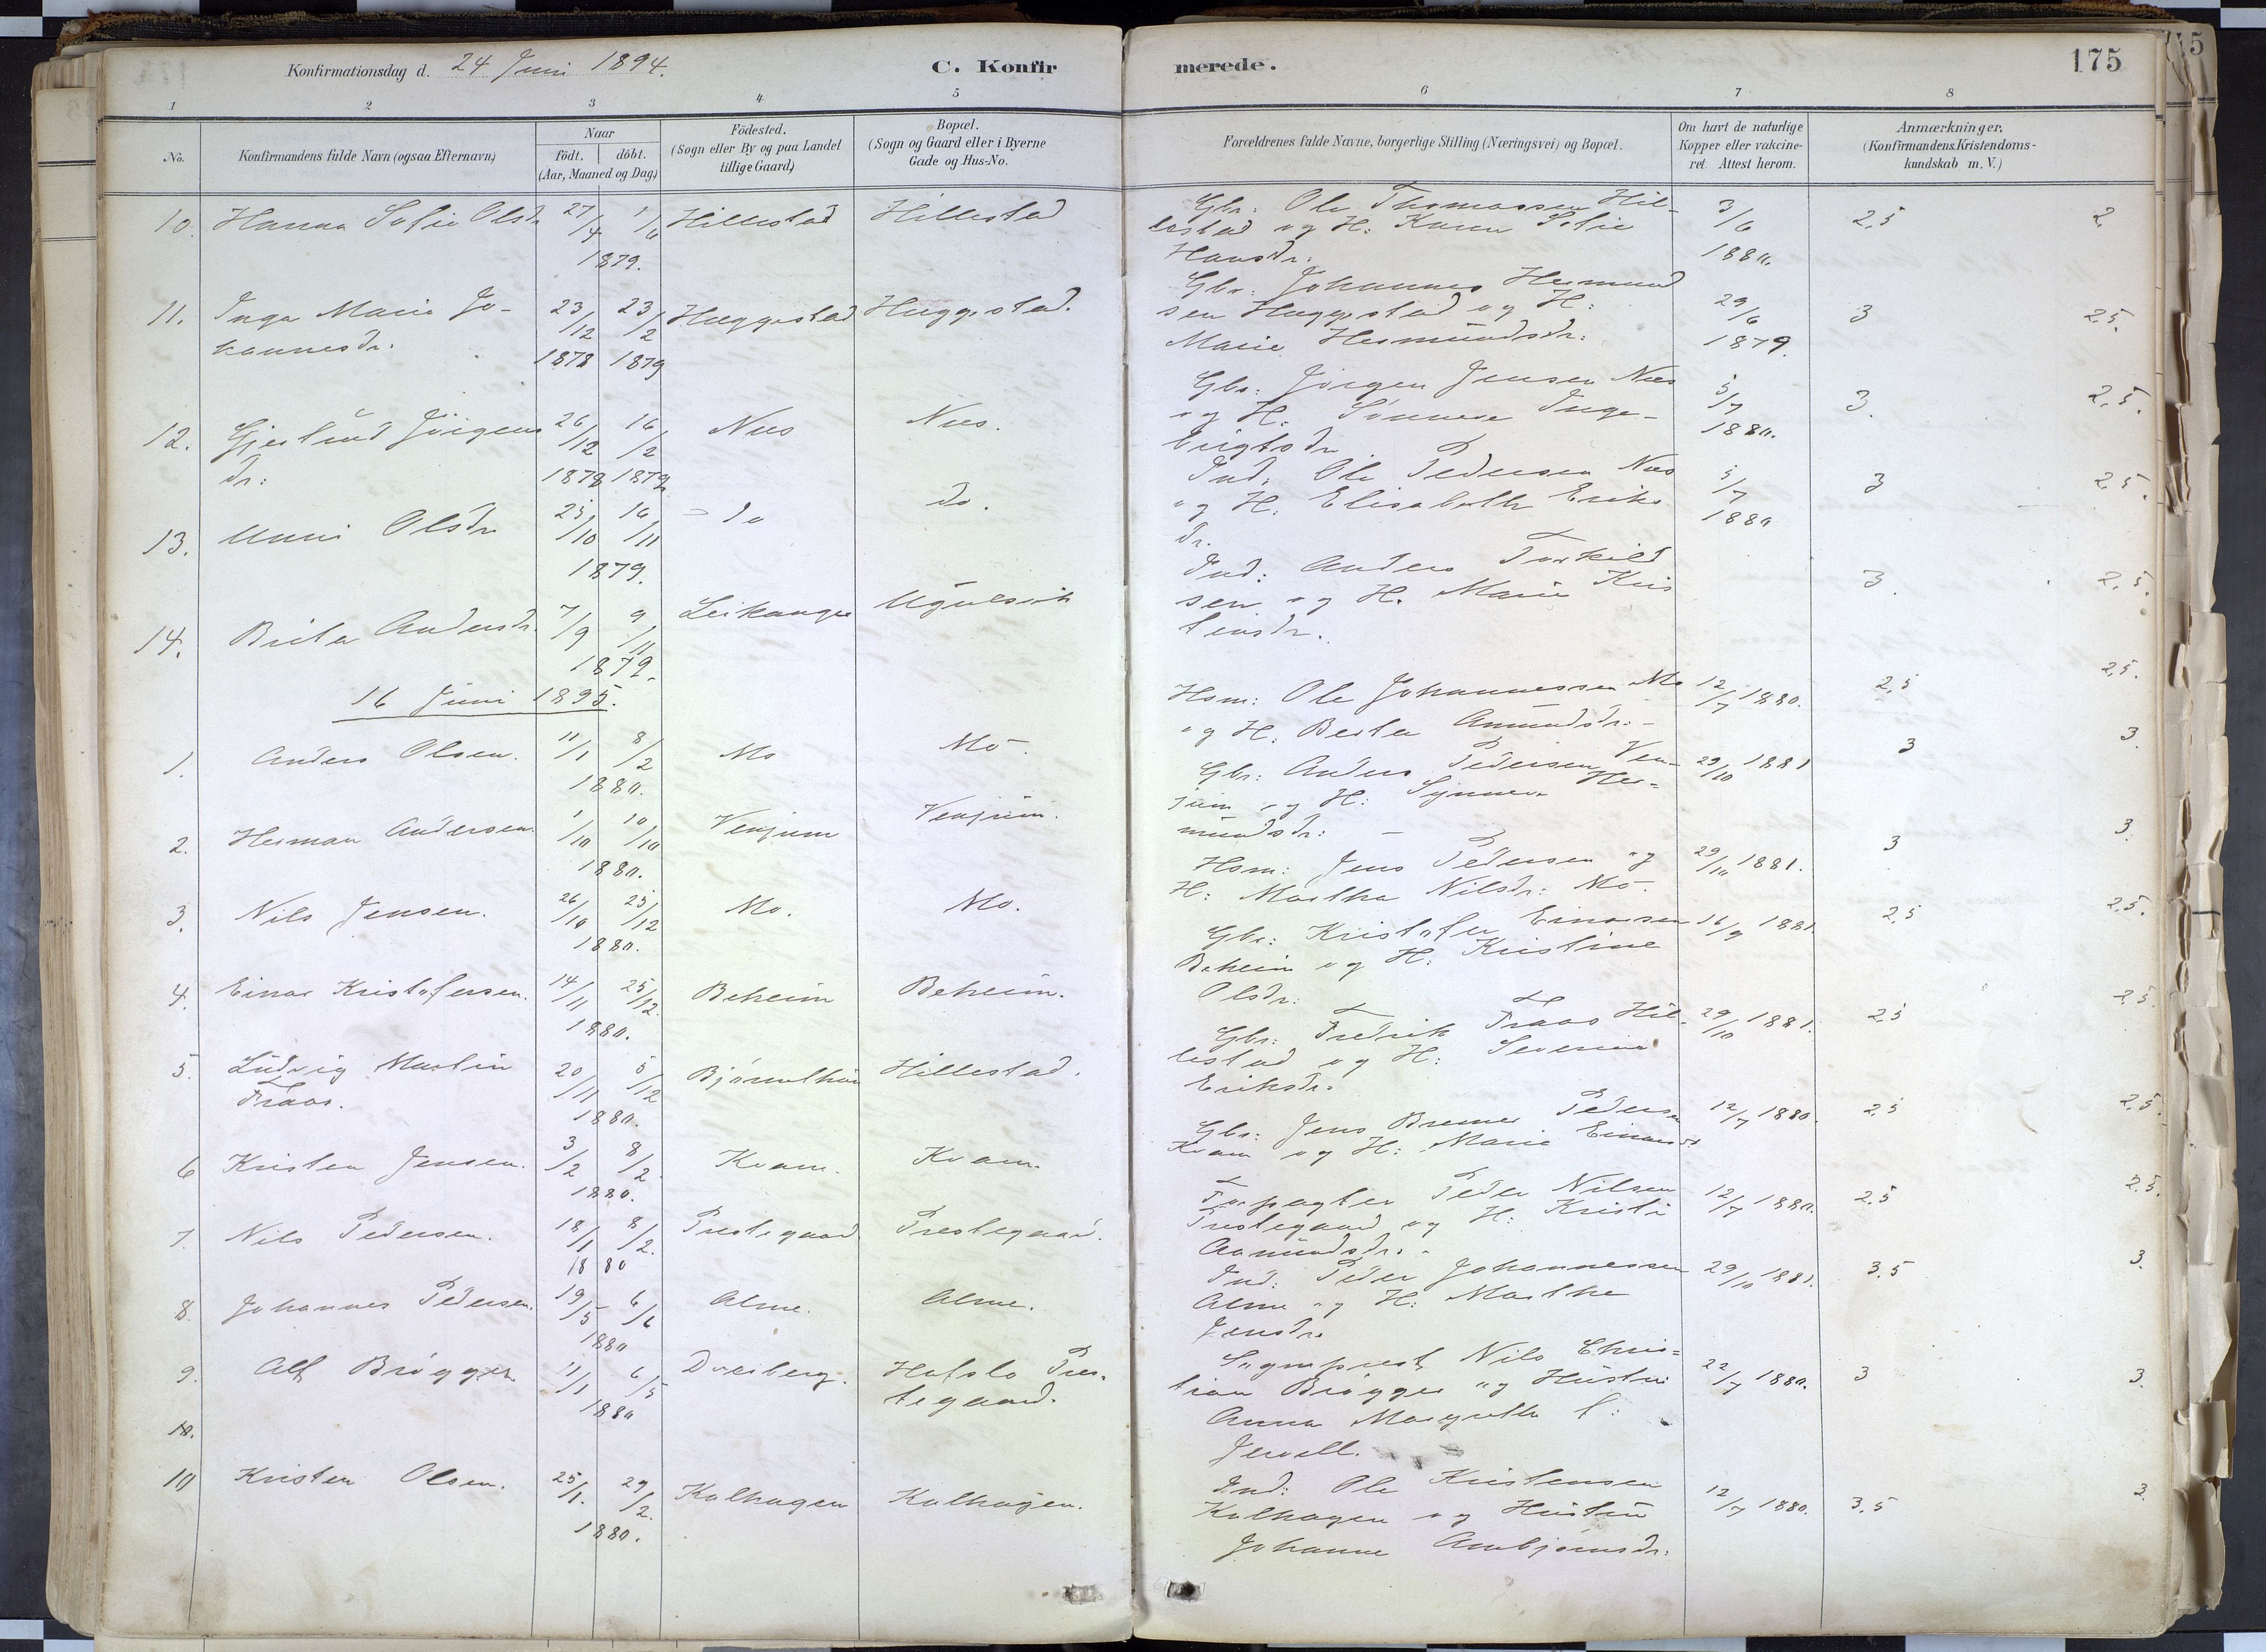 Konfirmationsdag d. 24 Juni 1894.
C. Konfirmerede.
175
1 2 3 4 5 6 7 8
No.
Konfirmandens fulde Navn (ogsaa Efternavn)
Naar
födt. döbt.
(Aar, Maaned og Dag)
Födested.
(Sogn eller By og paa Landet
tillige Gaard)
Bopæl.
(Sogn og Gaard eller i Byerne
Gade og Hus-No.
Forældrenes fulde Navne, borgerlige Stilling (Næringsvei) og Bopæl.
Om havt de naturlige
Kopper eller vakcine-
ret. Attest herom.
Anmærkninger.
(Konfirmandens Kristendoms-
kundskab m. V.)
10. Hanna Sofie Olsdr 27/4 1/6 1879. Hillestad Hillestad
Gbr: Ole Thomassen Hil-
lestad og H: Karen Sofie
Hansdr:
3/6 1880. 2,5 2
11. Inga Marie Jo-
hannesdr. 23/12 1878 23/2 1879 Huggestad Huggestad.
Gbr: Johannes Hermund
sen Huggestad og H:
Marie Hermundsdr:
29/6 1879. 3 2,5.
12. Gjertrud Jörgens
dr: 26/12 1878 16/2 1879 Nes Nes.
Gbr: Jörgen Jensen Nes
og H. Sönneve Inge-
brigtsdr
5/7 1880. 3. 2,5.
13. Unni Olsdr 25/10 16/11 1879. do do.
Ind: Ole Pedersen Nes
og H. Elisabeth Eriks
dr.
5/7 1880 3 2,5.
14. Brita Andersdr. 7/9 9/11 1879. Leikanger
Ind: Anders Torkild
sen og H. Marie Kris
tensdr.
3. 2,5.
16 Juni 1895.
1. Anders Olsen. 11/1 8/2 1880. Mo Mo.
Hsm: Ole Johannessen Mo
og H: Amundsdr.
12/7 1880. 2,5 2,5.
2. Herman Andersen. 1/10 10/10 1880. Venjum Venjum.
Gbr: Anders Pedersen Ven-
jum og H: Synneva Her-
mundsdr:
29/10 1881 3 3.
3. Nils Jensen. 26/10 25/12 1880. Mo. Mo.
Hsm: Jens Pedersen og
H: Martha Nilsdr: Mo.
29/10 1881. 3 3.
4. Einar Kristofersen. 14/11 25/12 1880. Beheim Beheim.
Gbr: Kristofer Einarsen
Beheim og H: Kristine
Olsdr:
16/9 1881 2,5 2,5.
5. Ludvig Martin
Traas. 20/11 5/12 1880. Hillestad.
Gbr: Fredrik Traas Hil-
lestad og H: Severine
Eriksdr.
29/10 1881. 2,5 2,5.
6 Kristen Jensen. 3/2 8/2 1880. Kvam. Kvam.
Gbr: Jens Bremer Pedersen
Kvam og H: Marie Einarsd
12/7 1880. 2,5 2,5.
7. Nils Pedersen. 18/1 8/2. 1880 Prestegaard Prestegaard.
Forpagter Peder Nilsen
Prestegaard og H: Kristi
Aamundsdr.
12/7 1880. 2,5 2,5.
8. Johannes Pedersen. 19/5 6/6 1880 Alme. Alme.
Ind: Peder Johannessen
Alme og H: Marthe
Jensdr.
29/10 1881. 3,5 3.
9. Alf Brögger. 11/1 6/5 1880 Hafslo Pres-
tegaard.
Sogneprest Nils Chris-
tian Brögger og Hustru
Anna Margrethe f:
Jervell.
22/7 1880. 3 3.
10.
10 Kristen Olsen. 25/1. 29/2. 1880. Kalhagen Kalhagen.
Ind: Ole Kristensen
Kalhagen og Hustru
Johanne Ambjörnsdr:
12/7 1880. 3,5 3.